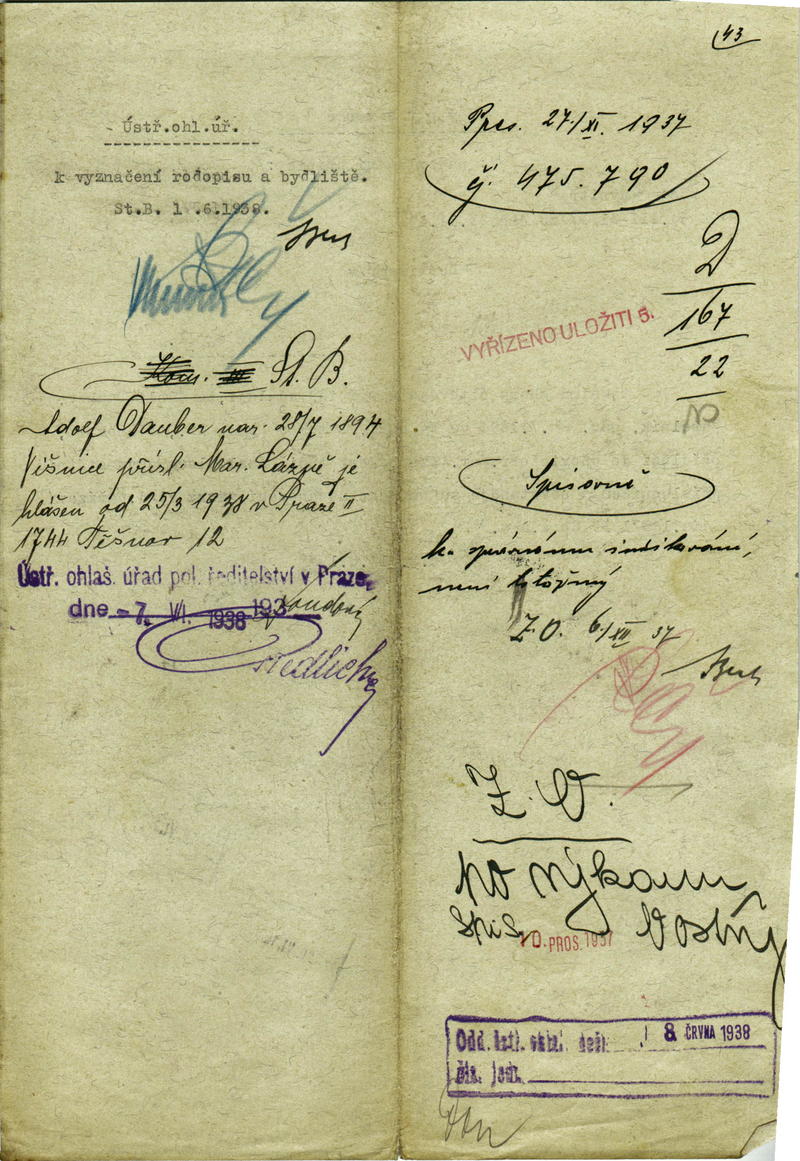 Ústř.ohl.úř.
k vyznačení rodopisu a bydliště.
St.B. 1 .6.1938.
St. B.
Adolf Dauber nar. 28/7 1894
Višnice přísl. Mar. Lázně je
hlášen od 25/3 1938 v Praze II
1744 Těšnov 12
Ústř. ohlaš. úřad pol. ředitelství v Praze,
dne - 7. VI. 1938
43
Pres. 27./XI. 1937
čj. 475.790
D
167
22
VYŘÍZENO ULOŽITI 5.
Spisovně
ke správnému indikování,
není totožný
Z.O. 6./XII 37
Z. O.
po výkonu
spis.
10. PROS. 1937
8 ČRVNA 1938
čis. jedn.